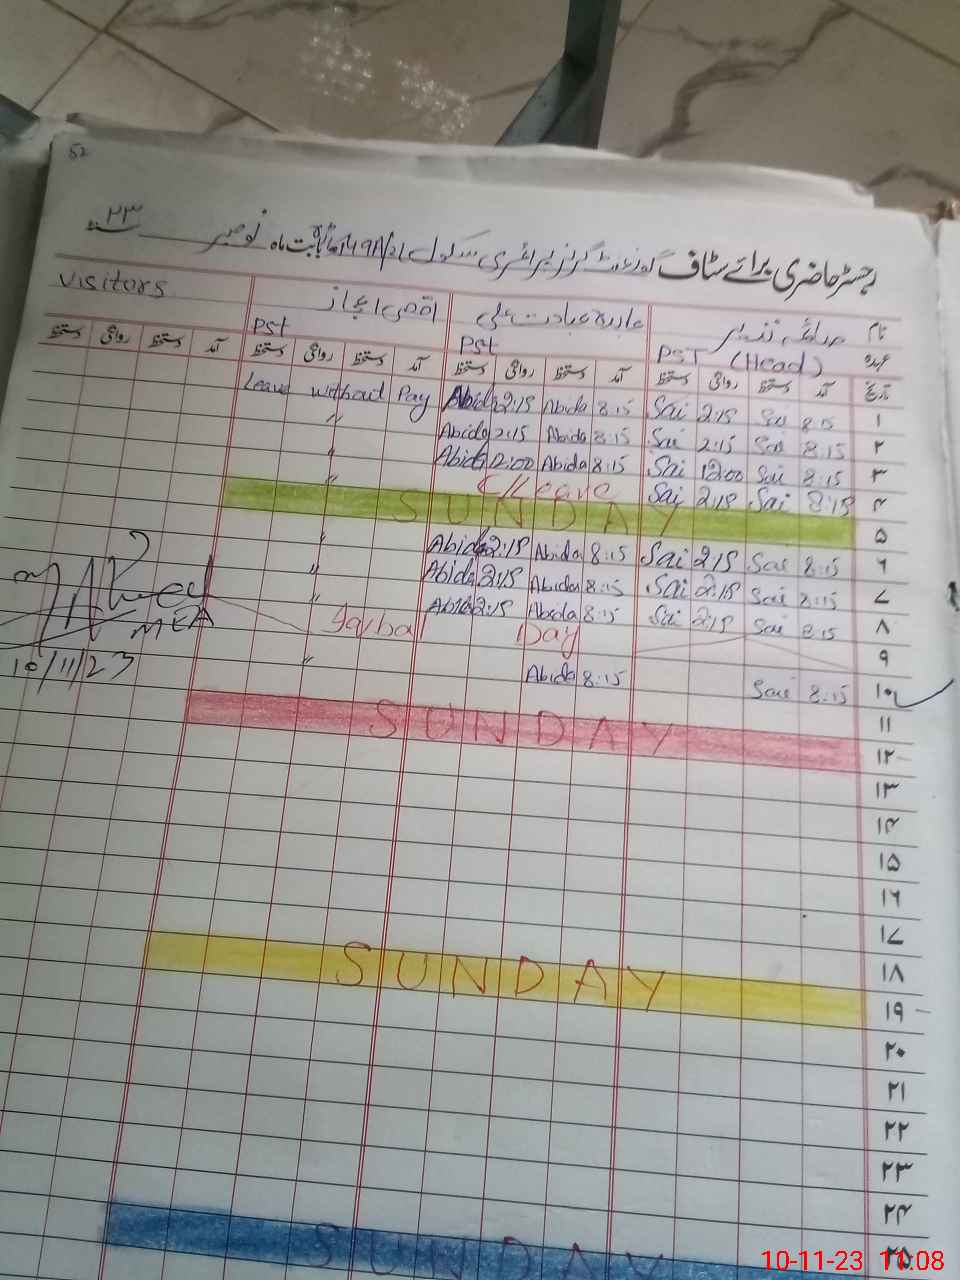 52
رجسٹر حاضری برائے سٹاف گورنمنٹ گرلز پرائمری سکول بابت ماہ نومبر ۲۳
نام صائمہ نذیر عابدہ عبادت علی اقصی اعجاز Visitors
عہدہ PST (Head) PST PST
تاریخ آمد دستخط روانگی دستخط آمد دستخط روانگی دستخط آمد دستخط روانگی دستخط آمد دستخط روانگی دستخط
۱ 8:15 Sai 2:15 Sai 8:15 Abida 2:15 Abida Leave without Pay
۲ 8:15 Sai 2:15 Sai 8:15 Abida 2:15 Abida "
۳ 8:15 Sai 12:00 Sai 8:15 Abida 12:00 Abida "
۴ 8:15 Sai 2:15 Sai C/Leave "
۵ SUNDAY
۶ 8:15 Sai 2:15 Sai 8:15 Abida 2:15 Abida "
۷ 8:15 Sai 2:15 Sai 8:15 Abida 2:15 Abida "
۸ 8:15 Sai 2:15 Sai 8:15 Abida 2:15 Abida "
۹ Iqbal Day
۱۰ 8:15 Sai 8:15 Abida "
MEA
10/11/23
۱۱
۱۲ SUNDAY
۱۳
۱۴
۱۵
۱۶
۱۷
۱۸
۱۹ SUNDAY
۲۰
۲۱
۲۲
۲۳
۲۴
۲۵
SUNDAY
10-11-23 11:08